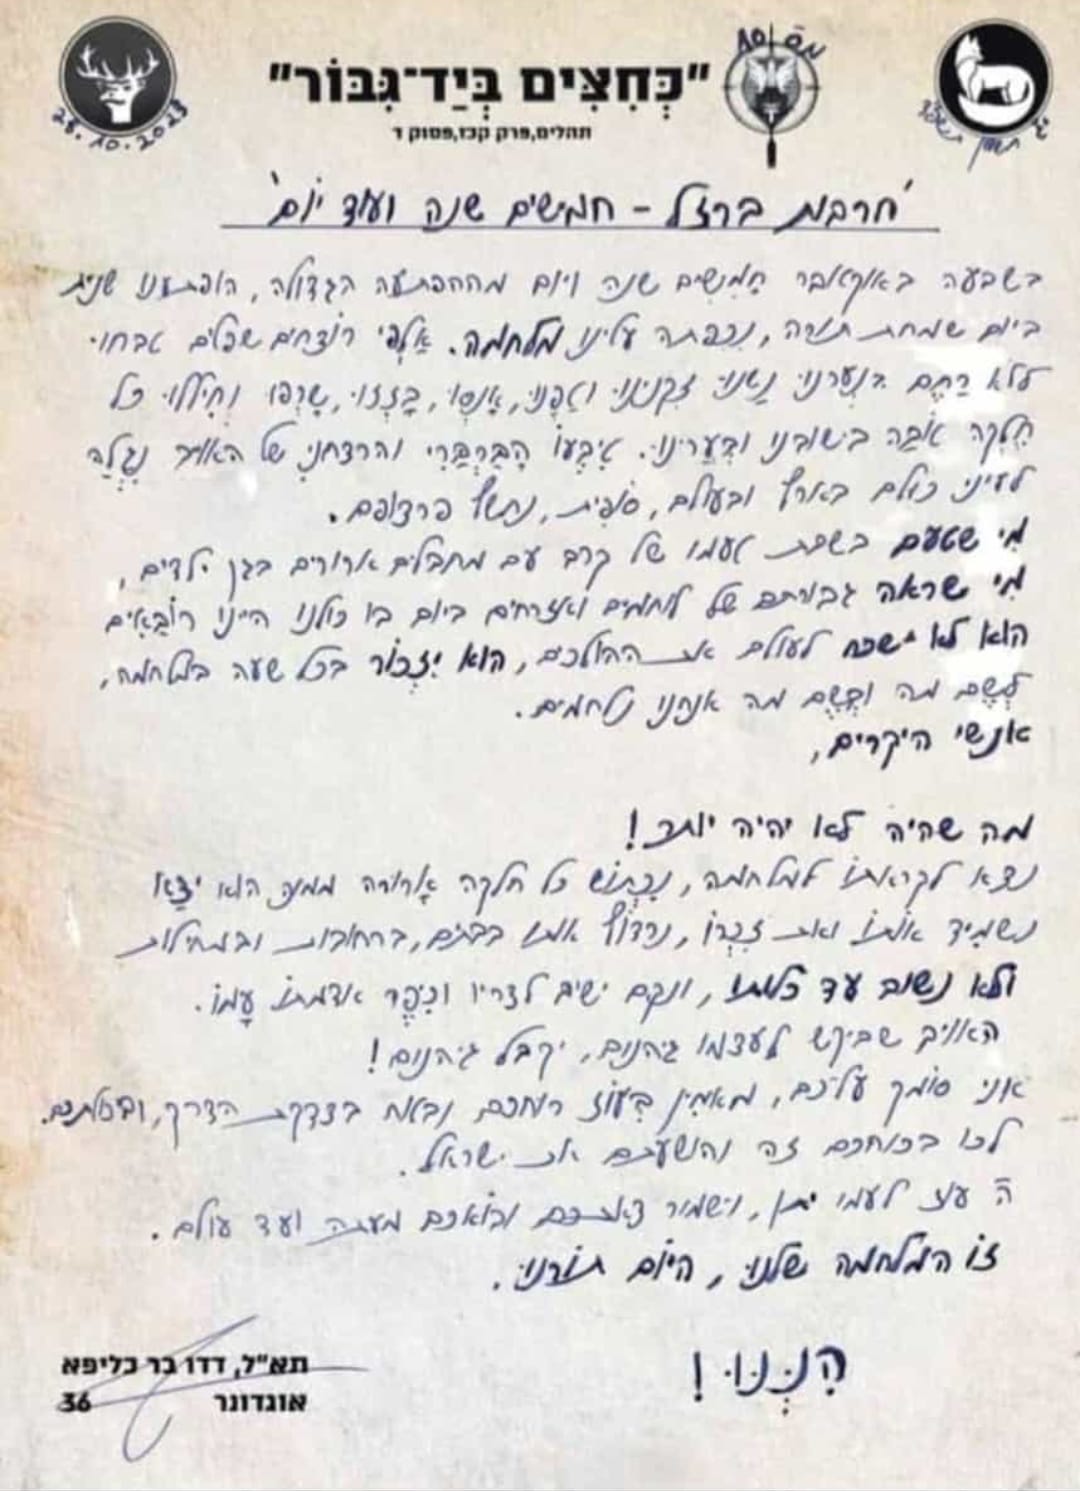 מס 10
"כְּחִצִּים בְּיַד־גִּבּוֹר"
תהלים,פרק קכז,פסוק ד
28.10.2023
יג חשוון תשפ"ד
'חרבות ברזל - חמישים שנה ועוד יום'
בשבעה באוקטובר חֲמִשִים שנה ויום מההפתעה הגדולה, הופתענו שנית
ביום שמחת תורה, נכפתה עלינו מלחמה. אַלְפֵי רוצחים שפלים טבחו
ללא רַחֵם בנְערנוּ נָשֵנוּ זקנינוּ וטַפֵנוּ, אָנְסוּ, בָּזְזוּ, שָרְפוּ וחִיללוּ כל
חֶלְקה טוֹבה בישובנו ובְעָרינוּ. טִבְעוֹ הַבַּרְבָּרִי והרצחני של האוייב נִגְלָה
לעיני כולם בארץ ובעולם, סוֹפִית, נחשף פרצופם.
מִי שטעם בשבת טעמו של קרב עם מחבלים ארורים בגן ילדים,
מִי שראה גבורתם של לוחמים ואזרחים ביום בו כולנו היינו רוֹבָאִים
הוא לא ישכח לעולם את ההולכים, הוא יִזְכּוֹר בכל שעה במלחמה,
לְשֵם מה ובְשֵם מה אנחנו נלחמים.
אנשי היקרים,
מה שהיה לא יהיה יותר!
נצא לקראתו למלחמה, נִכְתוֹש כל חלקה אֲרורה ממנה הוא יָצָא
נשמִיד אותוֹ ואת זִכְרוֹ, נרדוֹף אותו בבתים, ברחובות ובמחילות
ולא נשוב עד כלותו, ונקם ישיב לצריו וכִיפֶר אדמתוֹ עַמוֹ.
האוייב שביקש לעצמו גיהנום, יקבל גיהנום!
אני סומך עליכם, מאמִין בְּעוֹז רוחכם ובטוח בצדקת הדרך, וביכולתכם.
לכו בכוחכם זה והושעתם את ישראל.
ה' עוז לעמו יתן, וישמור צאתכם ובואכם מעתה ועד עולם.
זוֹ המלחמה שלנוּ, היום תורנוּ.
הִנֵּנוּ!
תא"ל, דדו בר כליפא
אוגדונר 36